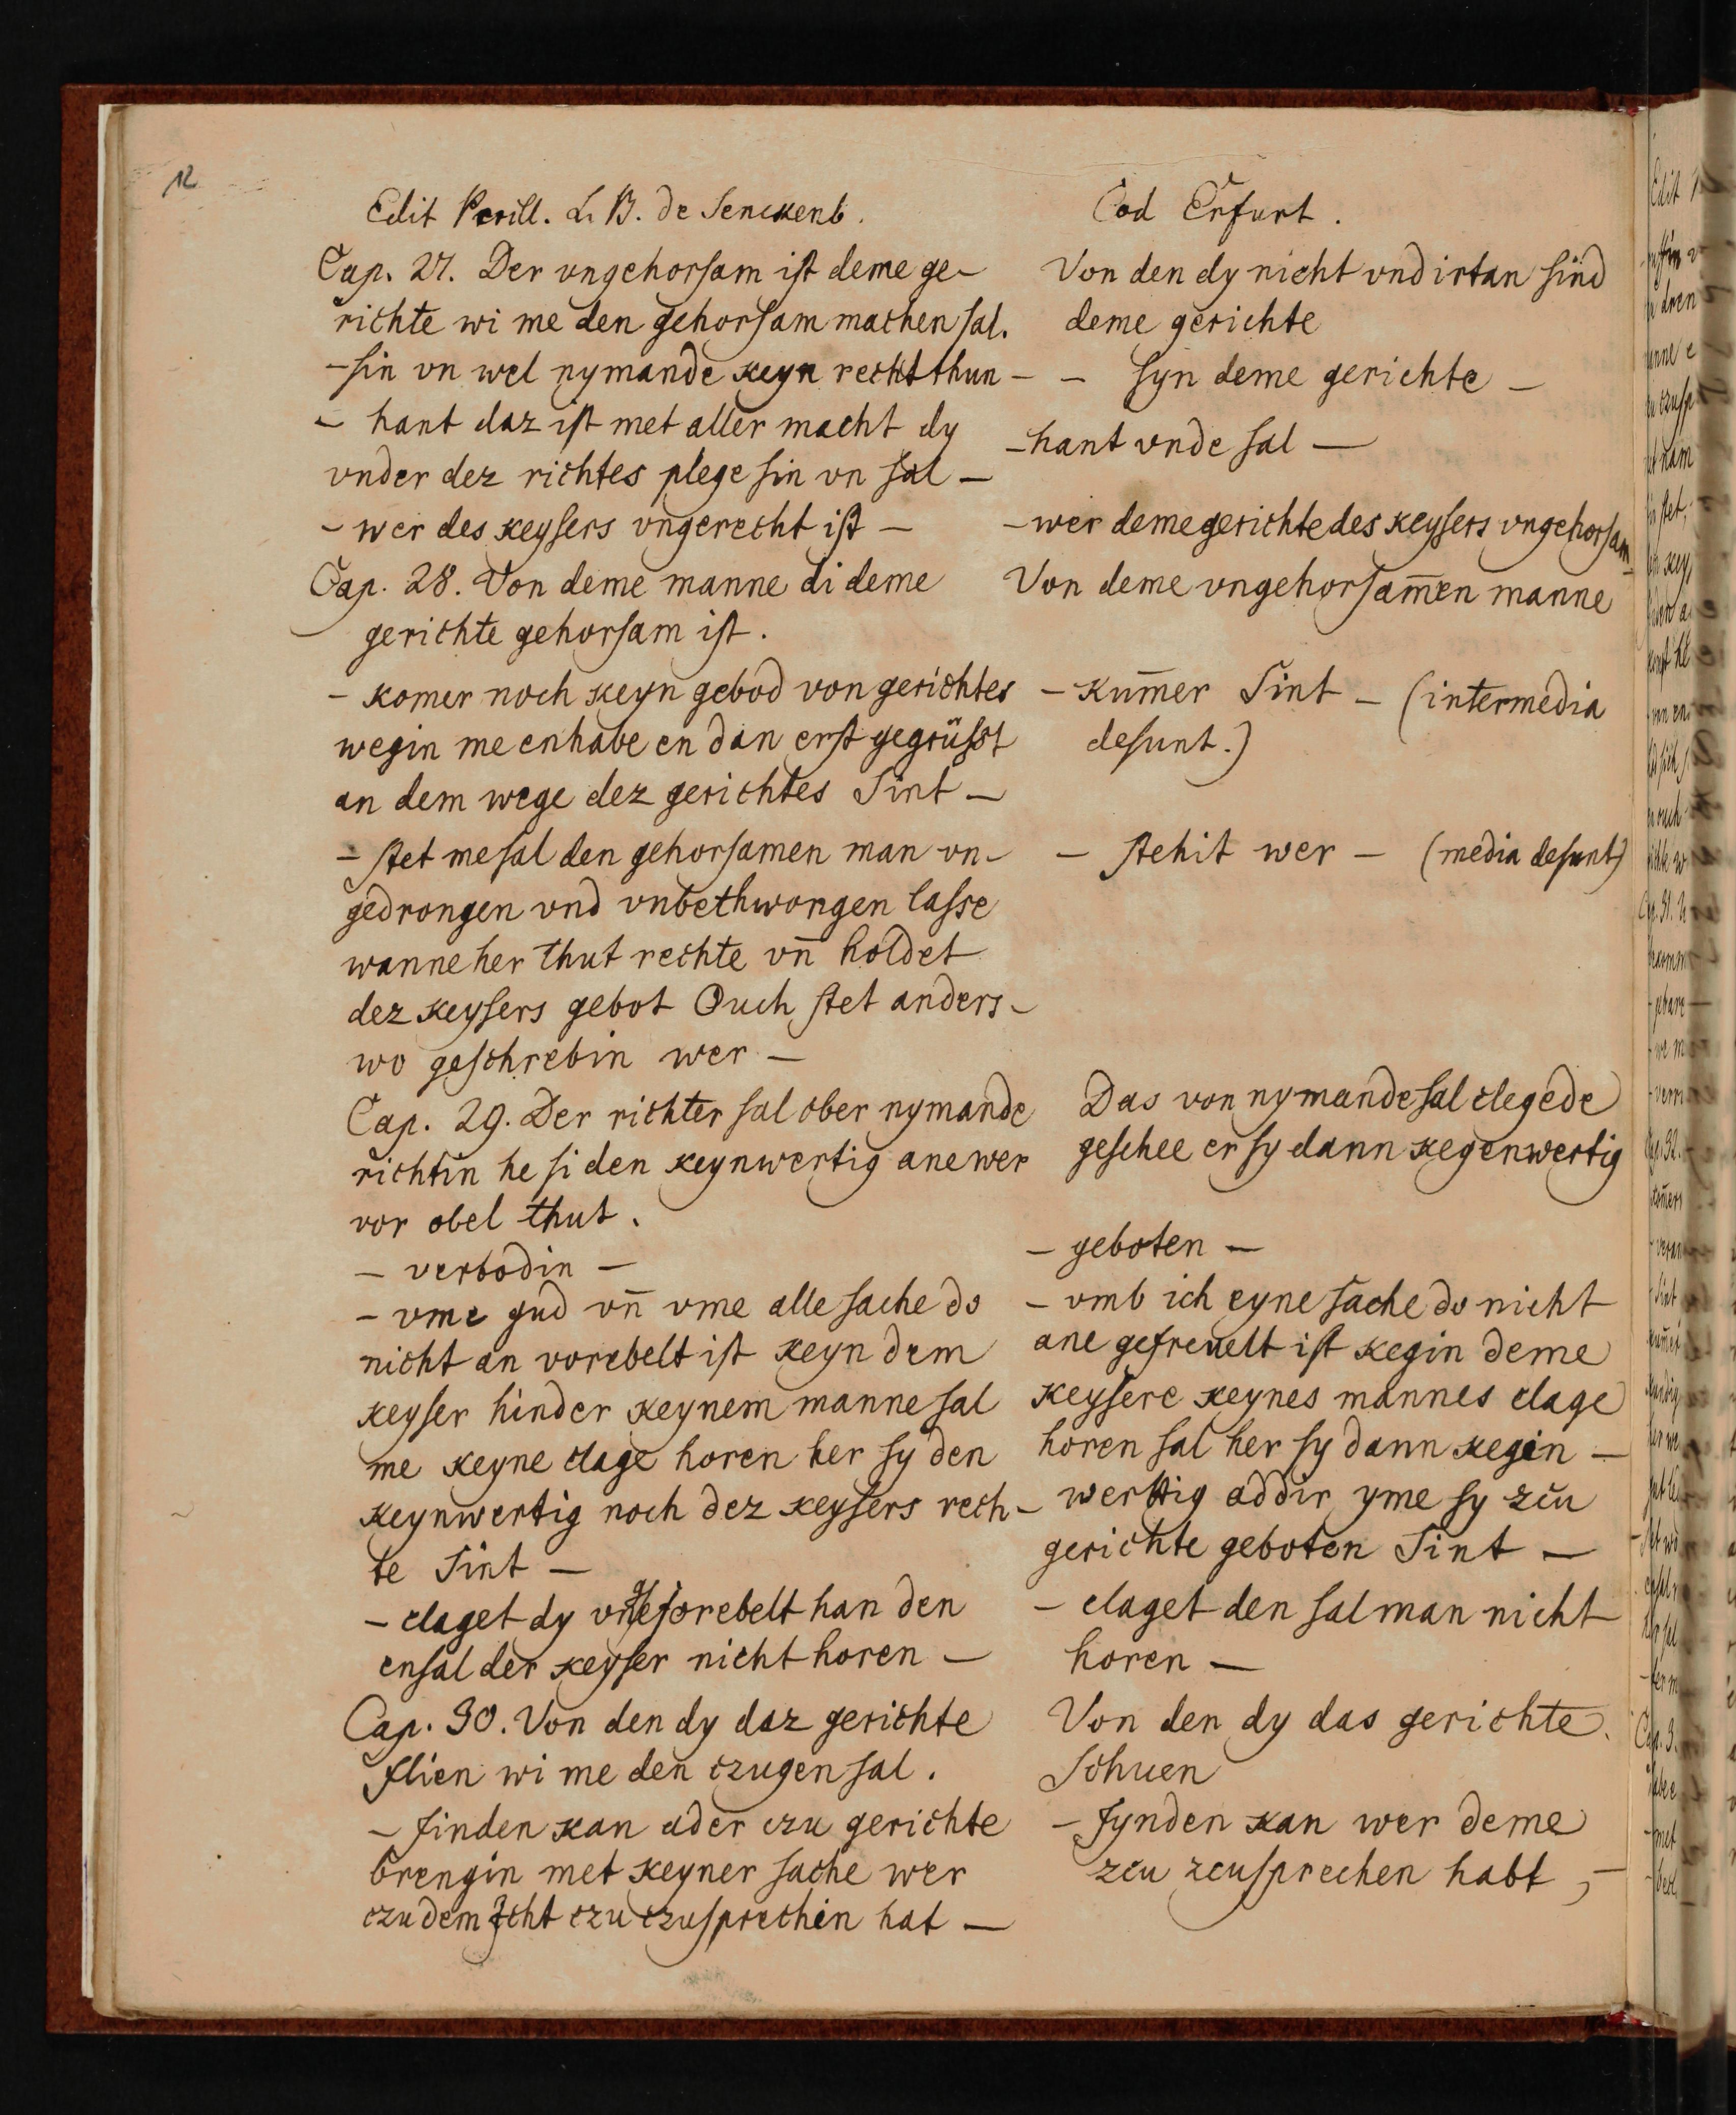 12
Edit Perill. L. B. de Senckenb.
Cap. 27. Der vngehorsam ist deme ge-
richte wi me den gehorsam machen sal.
- sin vn wel nymande keyn recht thun -
- hant daz ist met aller macht dy
vnder dez richtes plege sin vn sal -
- wer des keysers vngerecht ist -
Cap. 28. Von deme manne di deme
gerichte gehorsam ist.
- komer noch keyn gebod von gerichtes
wegin me enhabe en dan erst gegrüsst
an dem wege dez gerichtes Sint -
- stet me sal den gehorsamen man vn-
gedrongen vnd vnbethwongen lasse
wanne her thut rechte vn̄ holdet
dez keysers gebot Ouch stet anders-
wo geschrebin wer -
Cap. 29. Der richter sal ober nymande
richtin he si den keynwertig ane wer
vor obel thut.
- verbodin -
- vme gud vn̄ vme alle sache do
nicht an vorebelt ist keyn dem
keyser hinder keynem manne sal
me keyne clage horen her sy den
keynwertig noch dez keysers rech-
te Sint -
- claget dy vorebelt han den
ensal der keyser nicht horen -
Cap. 30. Von den dy daz gerichte
flien wi me den czugen sal.
- finden kan ader czu gerichte
brengin met keyner sache wer
czu dem Icht czu czusprechin hat -
Cod Erfurt.
Von den dy nicht vndirtan sind
deme gerichte
- syn deme gerichte -
- hant vnde sal -
- wer deme gerichte des keysers vngehorsam -
Von deme vngehorsam̄en manne
- kum̄er Sint - (intermedia
desunt.)
- stehit wer - (media desunt)
Das von nymande sal clegede
geschee er sy dann kegenwertig
- geboten -
- vmb ich eyne sache do nicht
ane gefreuelt ist kegin deme
keysere keynes mannes clage
horen sal her sy dann kegin -
wertig addir yme sy zcu
gerichte geboten Sint -
- claget den sal man nicht
horen -
Von den dy das gerichte
schuen
- fynden kan wer deme
zcu zcusprechen habt, -